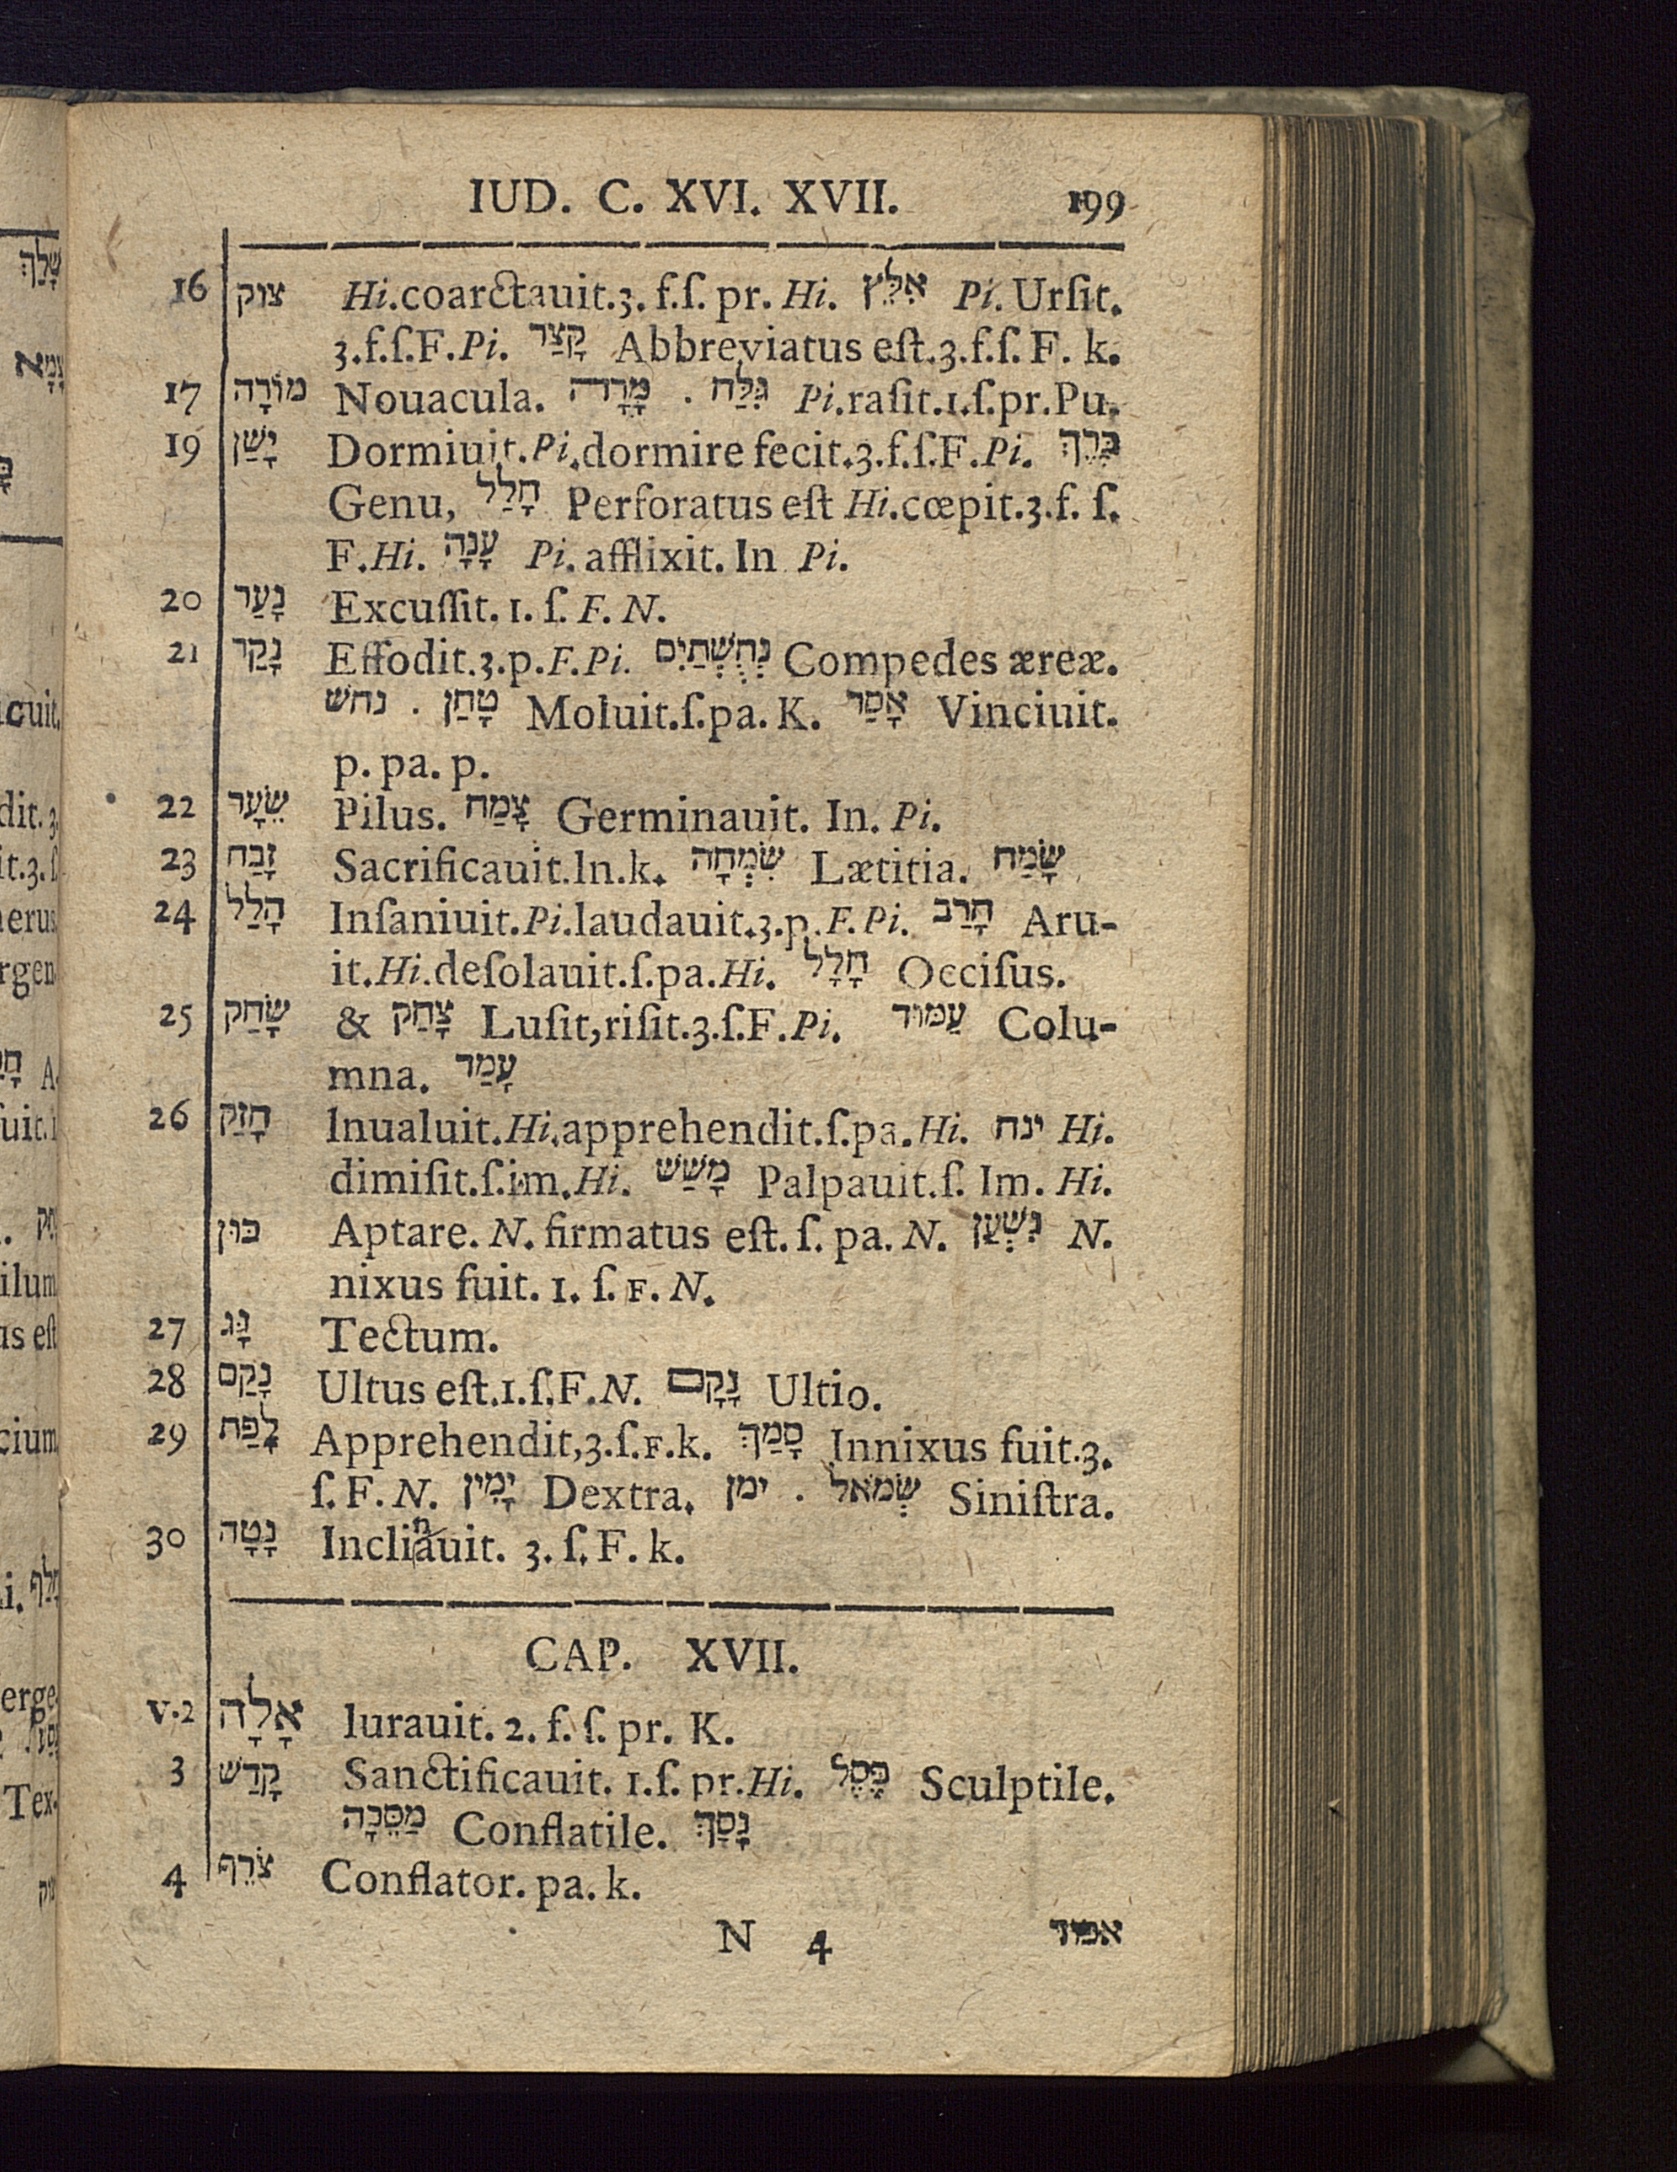 IUD. C. XVI. XVII. 199
16 צוק Hi.coarctauit.3. f.ſ. pr. Hi. אִלֵּץ Pi. Urſit.
3.f.ſ.F.Pi. קָצַר Abbreviatus eſt.3.f.ſ. F. k.
17 מוֹרָה Nouacula. מָרָה . גִּלַּח Pi.raſit.1.ſ.pr.Pu.
19 יָשַׁן Dormiuit.Pi.dormire fecit.3.f.ſ.F.Pi. בֶּרֶךְ
Genu, חָלַל Perforatus eſt Hi.cœpit.3.f. ſ.
F.Hi. עָנָה Pi. afflixit. In Pi.
20 נָעַר Excuſſit. 1. ſ. F. N.
21 נָקַר Effodit.3.p.F.Pi. נְחֻשְׁתַּיִם Compedes æreæ.
נחש . טָחַן Moluit.ſ.pa. K. אָסַר Vinciuit.
p. pa. p.
22 שֵׂעָר Pilus. צָמַח Germinauit. In. Pi.
23 זָבַח Sacrificauit.In.k. שִׂמְחָה Lætitia. שָׂמַח
24 הָלַל Inſaniuit.Pi.laudauit.3.p.F.Pi. חָרַב Aru-
it.Hi.deſolauit.ſ.pa.Hi. חָלָל Occiſus.
25 שָׂחַק & צָחַק Luſit,riſit.3.ſ.F.Pi. עַמּוּד Colu-
mna. עָמַד
26 חָזַק Inualuit.Hi.apprehendit.ſ.pa.Hi. ינח Hi.
dimiſit.ſ.im.Hi. מָשַׁשׁ Palpauit.ſ. Im. Hi.
כּוּן Aptare. N. firmatus eſt. ſ. pa. N. נִשְׁעַן N.
nixus fuit. 1. ſ. F. N.
27 גָּג Tectum.
28 נָקַם Ultus eſt.1.ſ.F.N. נָקָם Ultio.
29 לָפַת Apprehendit,3.ſ.F.k. סָמַךְ Innixus fuit.3.
ſ. F. N. יָמִין Dextra. ימן . שְׂמֹאל Siniſtra.
30 נָטָה Inclinauit. 3. ſ. F. k.
CAP. XVII.
v.2 אָלָה Iurauit. 2. f. ſ. pr. K.
3 קָדַשׁ Sanctificauit. 1.ſ. pr.Hi. פֶּסֶל Sculptile.
מַסֵּכָה Conflatile. נָסַךְ
4 צֹרֵף Conflator. pa. k.
N 4